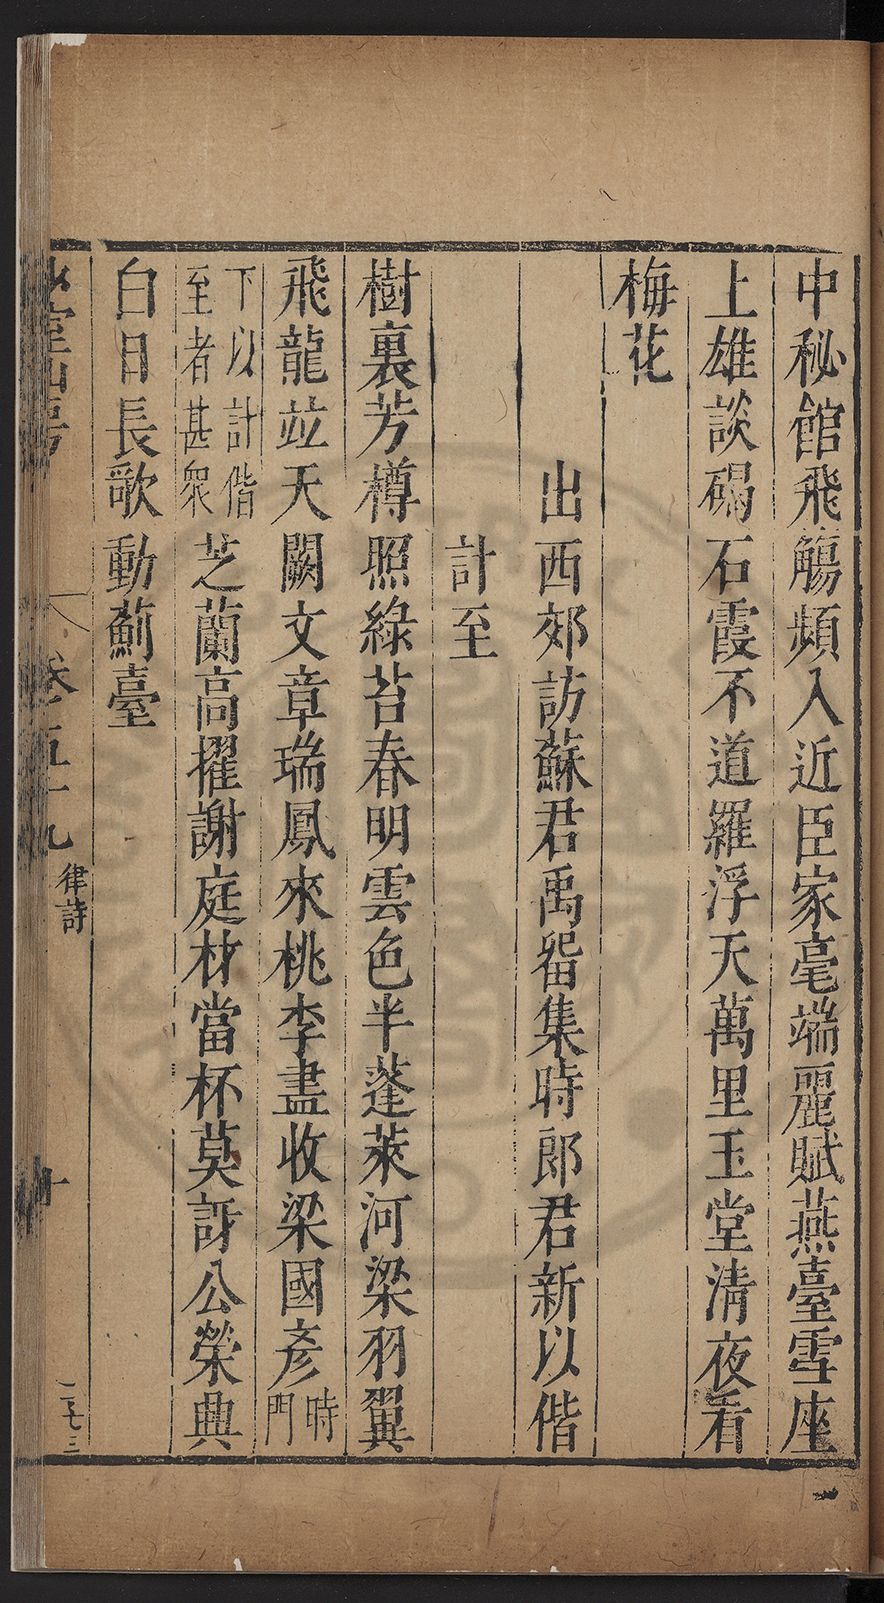 中秘館飛觴頻入近臣家毫端麗賦燕臺雪座
上雄談碣石霞不道羅浮天萬里玉堂清夜看
梅花
出西郊訪蘇君禹畱集時郎君新以偕
計至
樹裏芳樽照綠苔春明雲色半蓬萊河梁羽翼
飛龍竝天闕文章瑞鳳來桃李盡收梁國彥時門
下以計偕至者甚衆芝蘭高擢謝庭材當杯莫訝公榮典
白日長歌動薊臺
卷五十九
律詩
十